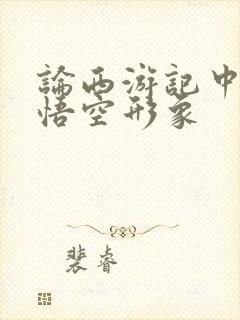 論西游記中
悟空形象
裴睿